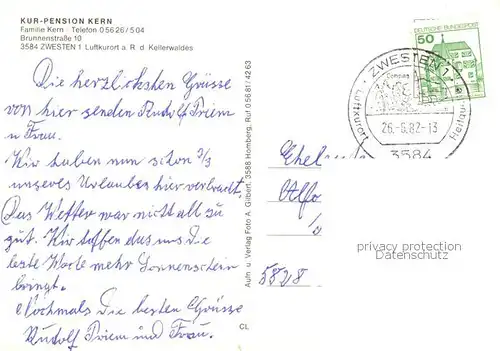 KUR-PENSION KERN
Familie Kern · Telefon 0 56 26 / 5 04
Brunnenstraße 10
3584 ZWESTEN 1 Luftkurort a. R. d. Kellerwaldes
Die herzlichsten Grüsse
von hier senden Rudolf Priem
u Frau.
Wir haben nun schon 2/3
unseres Urlaubes hier verbracht
Das Wetter war nicht all zu
gut. Wir hoffen das uns die
letzte Woche mehr Sonnenschein
bringt.
Nochmals Die besten Grüsse
Rudolf Priem und Frau.
Aufn. u. Verlag Foto A. Gilbert, 3588 Homberg, Ruf 05681/4263
CL
50
DEUTSCHE BUNDESPOST
ZWESTEN 1
Luftkurort
26.-6.82-13
3584
5828
privacy protection
Datenschutz